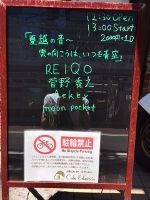 12:30 OPEN
13:00 START
2000円+1D
「夏越の音〜
雲の向こうは、いつも青空」
REIQO
菅野秀之
moon pocket
駐輪禁止
No Bicycle Parking